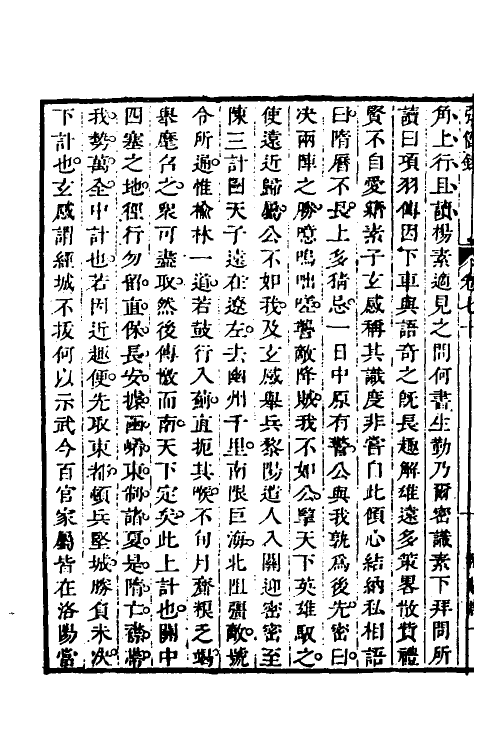 卷七十
角上行且讀楊素適見之問何書生勤乃爾密識素下拜問所
讀曰項羽傳因下車與語奇之旣長趣解雄遠多策畧散貲禮
賢不自愛藉素子玄感稱其識度非嘗自此傾心結納私相語
曰隋曆不長上多猜忌一日中原有警公與我孰爲後先密曰
决兩陣之勝噫嗚咄嗟讋敵降賊我不如公擥天下英雄馭之
使遠近歸屬公不如我及玄感舉兵黎陽遣人入關迎密密至
陳三計曰天子遠在遼左去幽州千里南限巨海北阻彊敵號
令所通惟榆林一道若鼓行入薊直扼其喉不旬月齎粮乏竭
舉麾召之衆可盡取然後傳檄而南天下定矣此上計也關中
四塞之地徑行勿留直保長安據函崤東制諸夏是隋亡襟帶
我勢萬全中計也若因近趣便先取東都頓兵堅城勝負未决
下計也玄感謂經城不拔何以示武今百官家屬皆在洛陽當